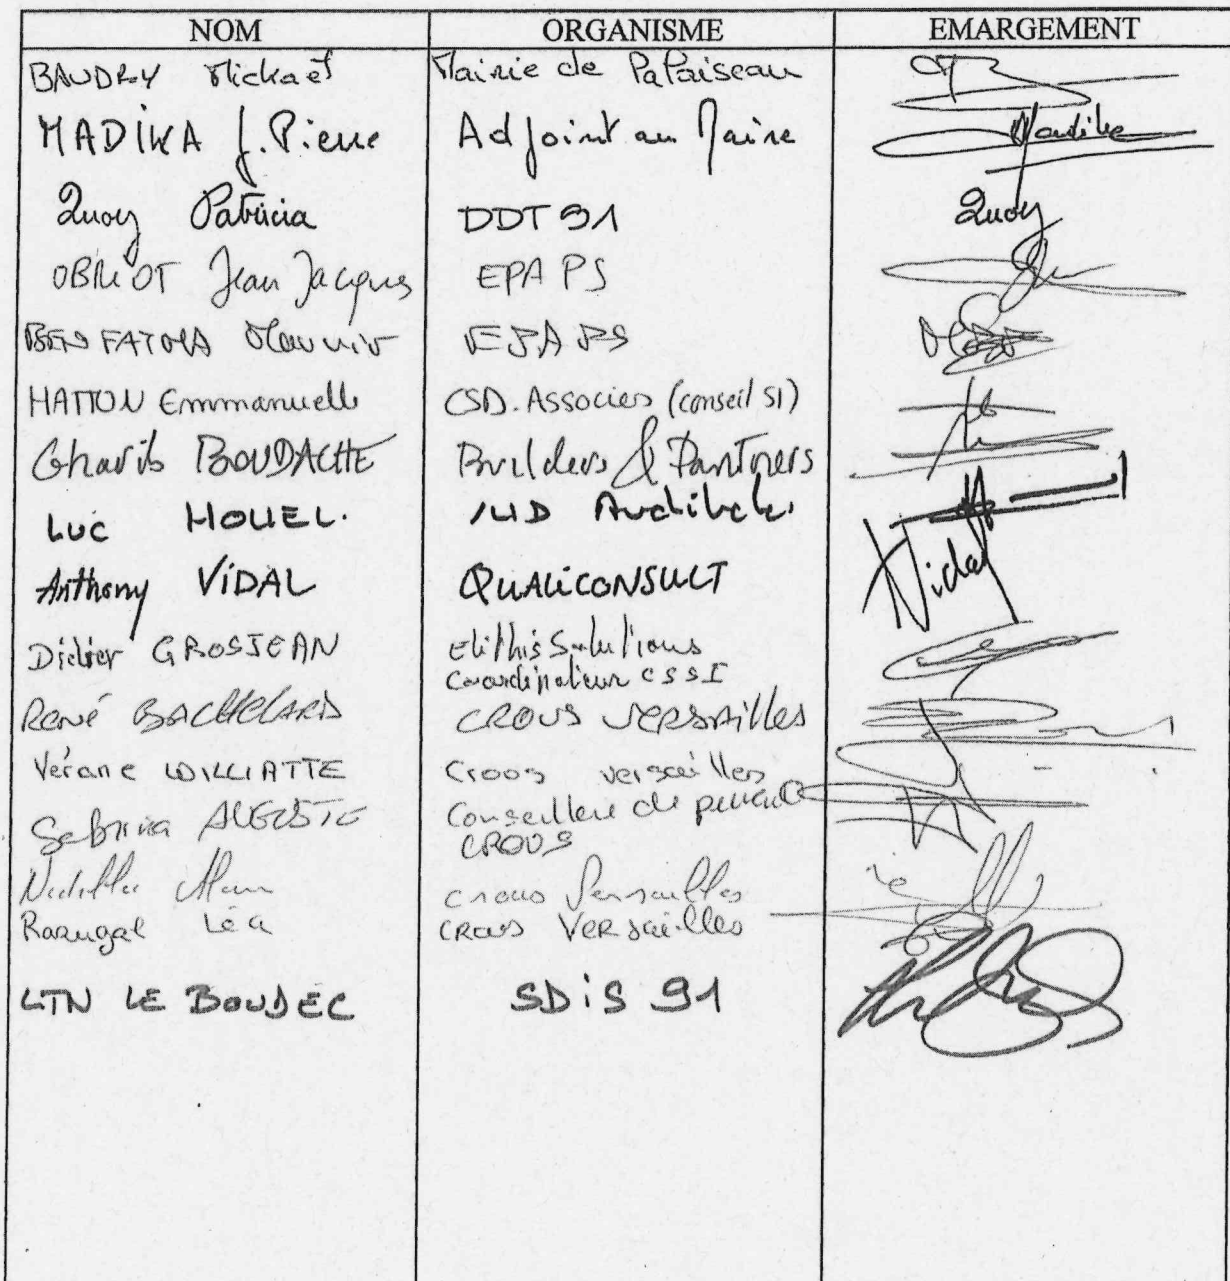 NOM ORGANISME EMARGEMENT
BAUDRY Mickaël Mairie de Palaiseau
MADIKA J.Pierre Adjoint au Maire Madika
Quoy Patricia DDT 91 Quoy
OBRIOT Jean Jacques EPA PS
BEN FATMA Mounir EPA PS
HATTON Emmanuelle CSD.Associes (conseil SI)
Gharib BOUDACHE Builders & Partners
Luc HOUEL.
Anthony VIDAL QUALICONSULT Vidal
Didier GROSJEAN Elithis Solutions
Coordinateur CSSI
René BACHELARD CROUS VERSAILLES
Vérane WILLIATTE Crous versailles
Sabrina AUGUSTE Conseillere de
CROUS
Crous Versailles
Léa CROUS Versailles
LTN LE BOUDEC SDiS 91